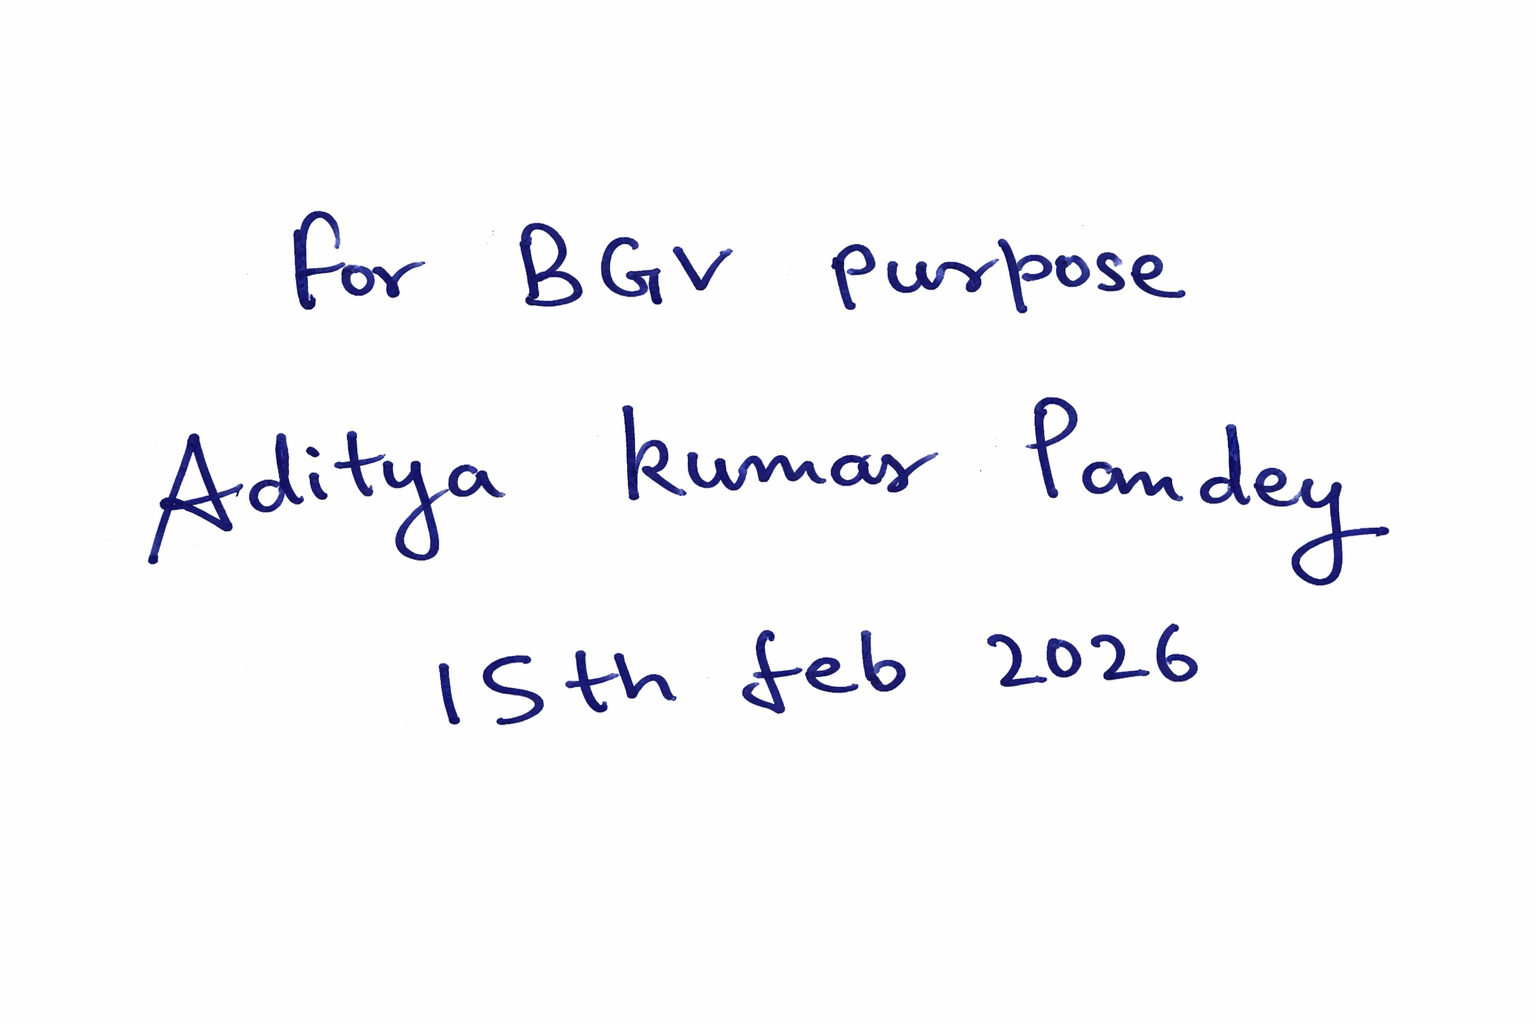 for BGV purpose
Aditya kumar Pandey
15th feb 2026